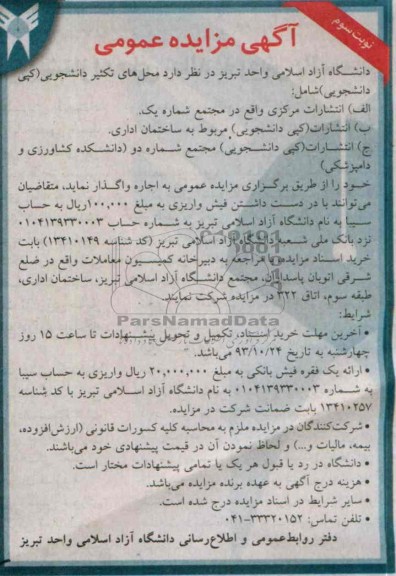 نوبت سوم
آگهی مزایده عمومی
دانشگاه آزاد اسلامی واحد تبریز در نظر دارد محل‌های تکثیر دانشجویی(کپی
دانشجویی)شامل:
الف) انتشارات مرکزی واقع در مجتمع شماره یک.
ب) انتشارات(کپی دانشجویی) مربوط به ساختمان اداری.
ج) انتشارات(کپی دانشجویی) مجتمع شماره دو (دانشکده کشاورزی و
دامپزشکی)
خود را از طریق برگزاری مزایده عمومی به اجاره واگذار نماید، متقاضیان
می‌توانند با در دست داشتن فیش واریزی به مبلغ ۱۰۰,۰۰۰ریال به حساب
سیبا به نام دانشگاه آزاد اسلامی تبریز به شماره حساب ۰۱۰۴۱۳۹۳۳۰۰۰۳
نزد بانک ملی شعبه دانشگاه آزاد اسلامی تبریز (کد شناسه ۱۳۴۱۰۱۴۹) بابت
خرید اسناد مزایده با مراجعه به دبیرخانه کمیسیون معاملات واقع در ضلع
شرقی اتوبان پاسداران، مجتمع دانشگاه آزاد اسلامی تبریز، ساختمان اداری،
طبقه سوم، اتاق ۳۲۲ در مزایده شرکت نمایند.
ParsNamadData
شرایط:
• آخرین مهلت خرید اسناد، تکمیل و تحویل پیشنهادات تا ساعت ۱۵ روز
چهارشنبه به تاریخ ۹۳/۱۰/۲۴ می‌باشد.
• ارائه یک فقره فیش بانکی به مبلغ ۲۰,۰۰۰,۰۰۰ ریال واریزی به حساب سیبا
به شماره ۰۱۰۴۱۳۹۳۳۰۰۰۳ به نام دانشگاه آزاد اسلامی تبریز با کد شناسه
۱۳۴۱۰۲۵۷ بابت ضمانت شرکت در مزایده.
• شرکت‌کنندگان در مزایده ملزم به محاسبه کلیه کسورات قانونی (ارزش‌افزوده،
بیمه، مالیات و...) و لحاظ نمودن آن در قیمت پیشنهادی خود می‌باشند.
• دانشگاه در رد یا قبول هر یک یا تمامی پیشنهادات مختار است.
• هزینه درج آگهی به عهده برنده مزایده می‌باشد.
• سایر شرایط در اسناد مزایده درج شده است.
• تلفن تماس: ۳۳۳۲۰۱۵۲-۰۴۱
دفتر روابط‌عمومی و اطلاع‌رسانی دانشگاه آزاد اسلامی واحد تبریز